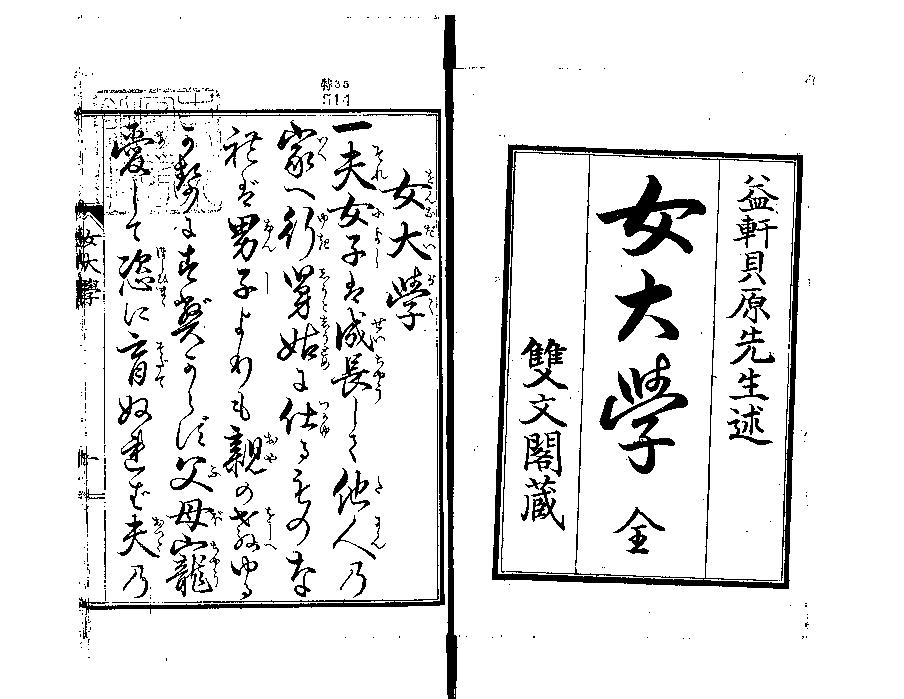 益軒貝原先生述
女大學 全
雙文閣蔵
特35
514
女大學
一夫女子は成長して他人乃
家へ行舅姑に仕るものな
れば男子よりも親の教ゆる
かせにすべからず父母寵
愛して恣に育ぬれば夫乃
女大學